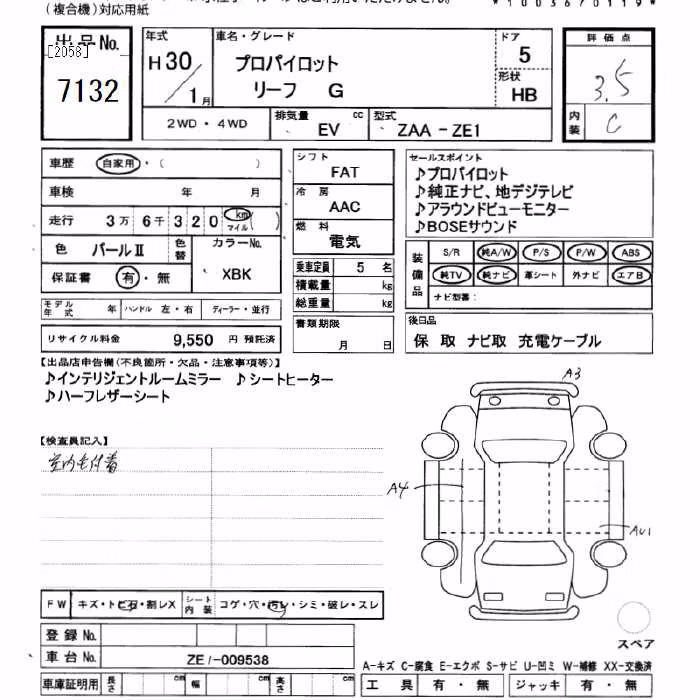 (複合機)対応用紙
*1003670119*
出品No.
[2058]
7132
年式
H30/1月
車名・グレード
プロパイロット
リーフ G
ドア
5
形状
HB
評価点
3.5
内装
C
2WD・4WD
排気量 cc
EV
型式
ZAA-ZE1
車歴 自家用・( )
車検 年 月
走行 3万6千320 km マイル ( )
色 パールⅡ 色替
カラーNo.
XBK
保証書 有・無
モデル年式 年 ハンドル 左・右 ディーラー・並行
リサイクル料金 9,550 円 預託済
シフト
FAT
冷房
AAC
燃料
電気
乗車定員 5 名
積載量 kg
総重量 kg
書類期限
月 日
セールスポイント
♪プロパイロット
♪純正ナビ、地デジテレビ
♪アラウンドビューモニター
♪BOSEサウンド
装備品
S/R 純A/W P/S P/W ABS
純TV 純ナビ 革シート 外ナビ エアB
ナビ型番:
後日品
保 取 ナビ取 充電ケーブル
【出品店申告欄(不良箇所・欠品・注意事項等)】
♪インテリジェントルームミラー ♪シートヒーター
♪ハーフレザーシート
【検査員記入】
室内毛付着
A3
A4
AU1
FW キズ・トビ石・割レX シート内装 コゲ・穴・汚レ・シミ・破レ・スレ
登録No.
車台No. ZE1-009538
スペア
A-キズ C-腐食 E-エクボ S-サビ U-凹ミ W-補修 XX-交換済
車庫証明用 長さ cm 幅 cm 高さ cm
工具 有・無 ジャッキ 有・無